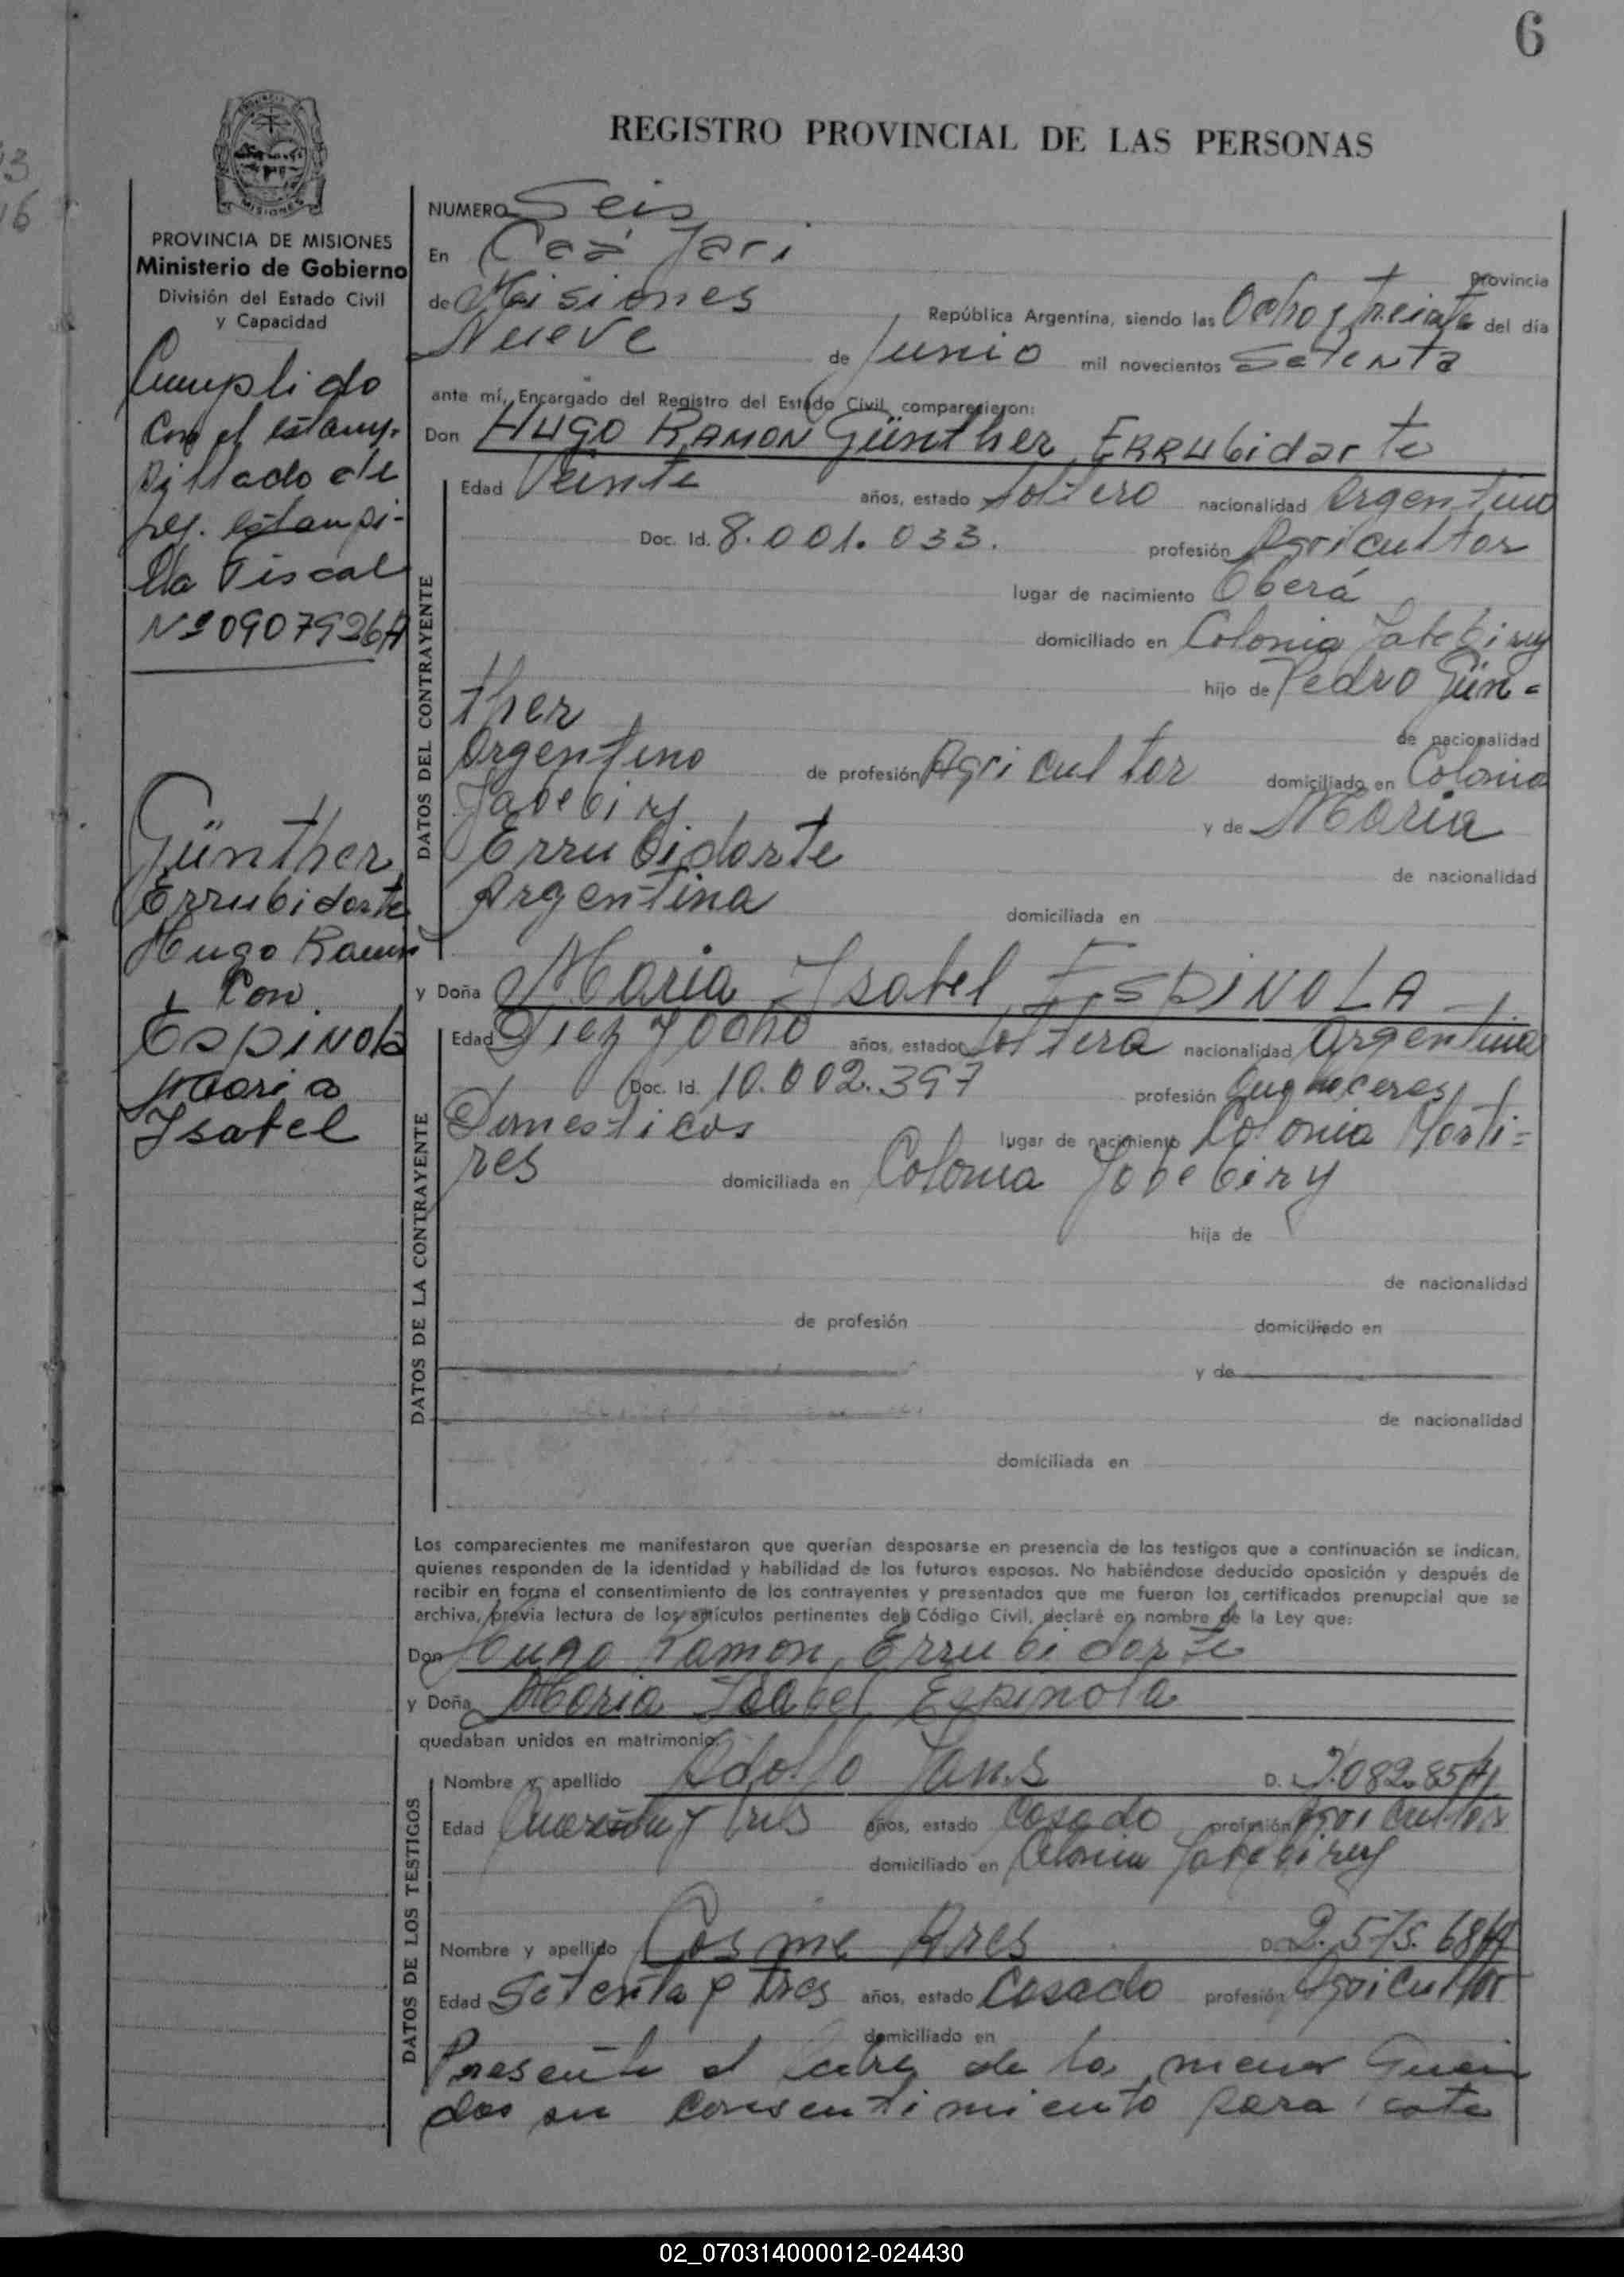 6
REGISTRO PROVINCIAL DE LAS PERSONAS
PROVINCIA DE MISIONES
Ministerio de Gobierno
División del Estado Civil
y Capacidad
Cumplido
con el estamp.
pillado de
ley. estampi-
lla Fiscal
Nº 0907926A
Günther
Errubidarte
Hugo Ramon
Con
Espinola
Maria
Isabel
NUMERO Seis
En Caá Yari Provincia
de Misiones República Argentina, siendo las Ocho y treinta del día
Nueve de Junio mil novecientos Setenta
ante mí, Encargado del Registro del Estado Civil, comparecieron:
Don HUGO RAMON Günther ERRUbidarte
DATOS DEL CONTRAYENTE
Edad Veinte años, estado Soltero nacionalidad Argentino
Doc. Id. 8.001.033. profesión Agricultor
lugar de nacimiento Oberá
domiciliado en Colonia Yabebiry
hijo de Pedro Gün=
ther de nacionalidad
Argentino de profesión Agricultor domiciliado en Colonia
Yabebiry y de Maria
Errubidarte de nacionalidad
Argentina domiciliada en
y Doña Maria Ysabel ESPINOLA
DATOS DE LA CONTRAYENTE
Edad Diez y ocho años, estado Soltera nacionalidad Argentina
Doc. Id. 10.002.397 profesión Quehaceres
Domesticos lugar de nacimiento Colonia Marti=
res domiciliada en Colonia Yabebiry
hija de
de nacionalidad
de profesión domiciliado en
y de
de nacionalidad
domiciliada en
Los comparecientes me manifestaron que querían desposarse en presencia de los testigos que a continuación se indican,
quienes responden de la identidad y habilidad de los futuros esposos. No habiéndose deducido oposición y después de
recibir en forma el consentimiento de los contrayentes y presentados que me fueron los certificados prenupcial que se
archiva, previa lectura de los artículos pertinentes del Código Civil, declaré en nombre de la Ley que:
Don Hugo Ramon Errubidarte
y Doña Maria Isabel Espinola
quedaban unidos en matrimonio.
DATOS DE LOS TESTIGOS
Nombre y apellido Adolfo D.
Edad Cuarenta y tres años, estado Casado profesión Agricultor
domiciliado en Colonia Yabebiry
Nombre y apellido Cosme Ares D.
Edad Setenta y tres años, estado Casado profesión Agricultor
domiciliado en
Presente el de la menor
su consentimiento para este
02_070314000012-024430